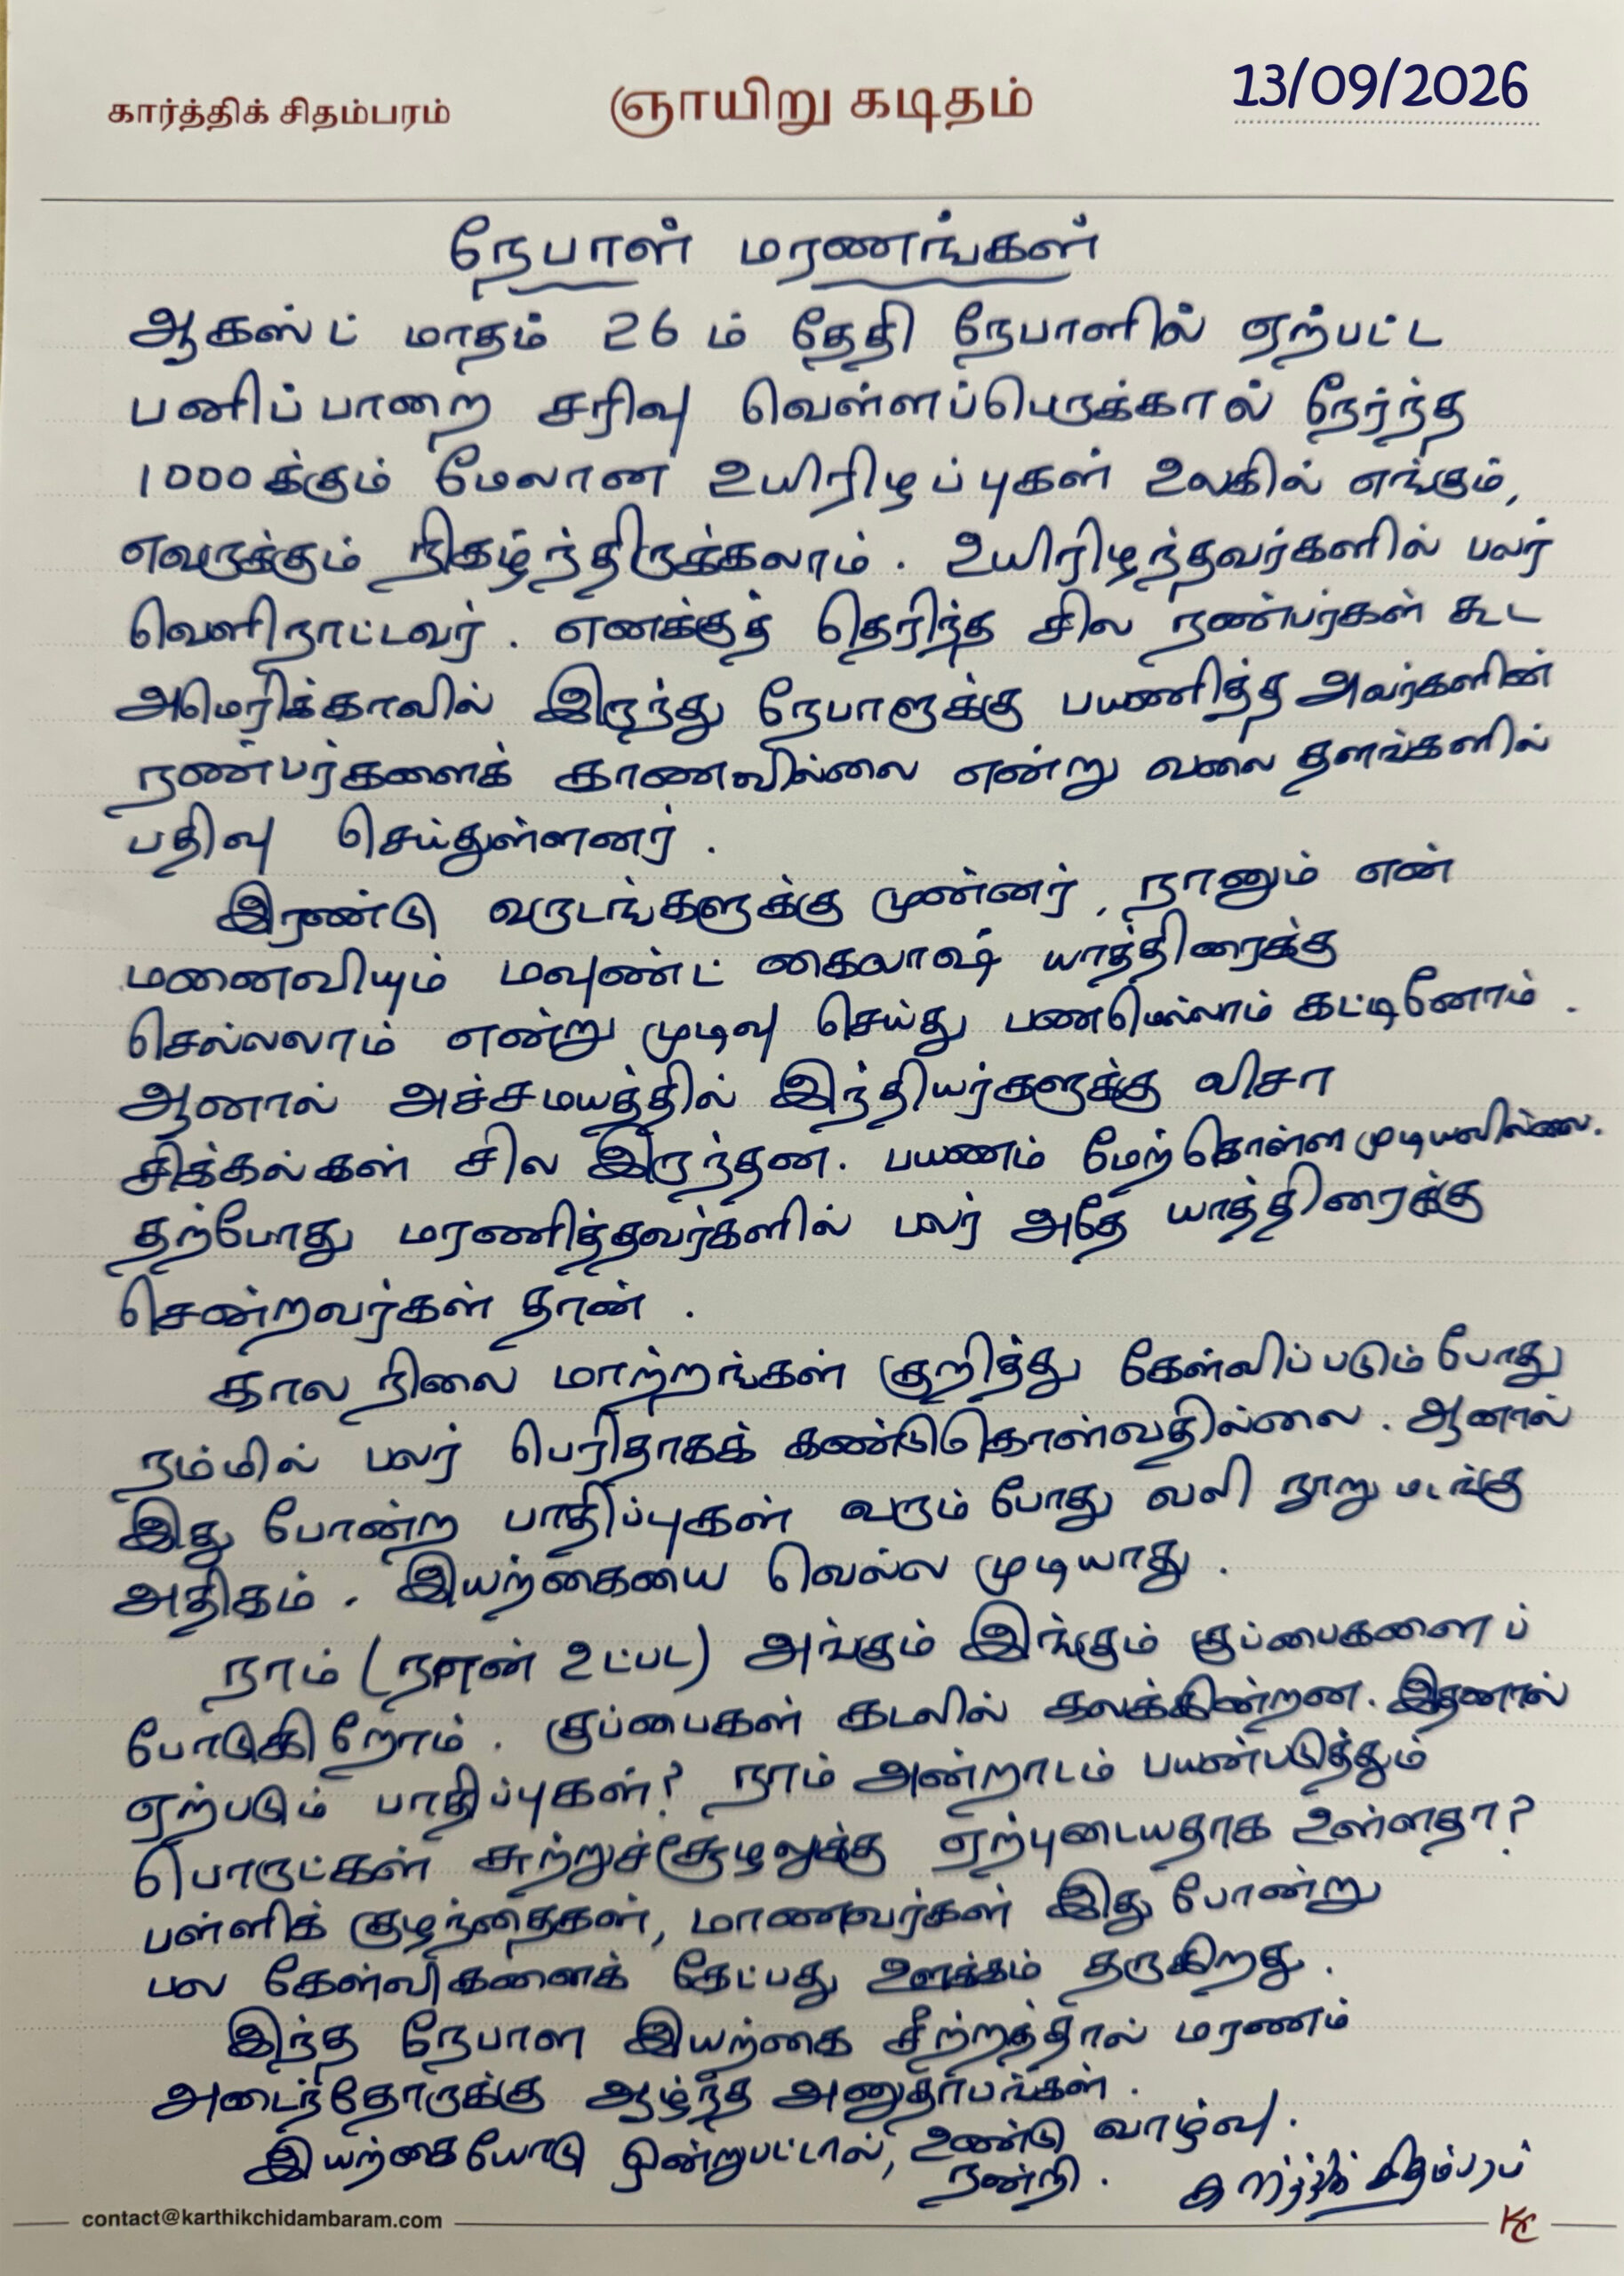 கார்த்திக் சிதம்பரம்
ஞாயிறு கடிதம்
13/09/2026
நேபாள் மரணங்கள்
ஆகஸ்ட் மாதம் 26 ம் தேதி நேபாளில் ஏற்பட்ட
பனிப்பாறை சரிவு வெள்ளப்பெருக்கால் நேர்ந்த
1000க்கும் மேலான உயிரிழப்புகள் உலகில் எங்கும்,
எவருக்கும் நிகழ்ந்திருக்கலாம். உயிரிழந்தவர்களில் பலர்
வெளிநாட்டவர். எனக்குத் தெரிந்த சில நண்பர்கள் கூட
அமெரிக்காவில் இருந்து நேபாளுக்கு பயணித்த அவர்களின்
நண்பர்களைக் காணவில்லை என்று வலை தளங்களில்
பதிவு செய்துள்ளனர்.
இரண்டு வருடங்களுக்கு முன்னர், நானும் என்
மனைவியும் மவுண்ட் கைலாஷ் யாத்திரைக்கு
செல்லலாம் என்று முடிவு செய்து பணமெல்லாம் கட்டினோம்.
ஆனால் அச்சமயத்தில் இந்தியர்களுக்கு விசா
சிக்கல்கள் சில இருந்தன. பயணம் மேற்கொள்ள முடியவில்லை.
தற்போது மரணித்தவர்களில் பலர் அதே யாத்திரைக்கு
சென்றவர்கள் தான்.
கால நிலை மாற்றங்கள் குறித்து கேள்விப்படும் போது
நம்மில் பலர் பெரிதாகக் கண்டுகொள்வதில்லை. ஆனால்
இது போன்ற பாதிப்புகள் வரும் போது வலி நூறு மடங்கு
அதிகம். இயற்கையை வெல்ல முடியாது.
நாம் (நான் உட்பட) அங்கும் இங்கும் குப்பைகளைப்
போடுகிறோம். குப்பைகள் கடலில் கலக்கின்றன. இதனால்
ஏற்படும் பாதிப்புகள்? நாம் அன்றாடம் பயன்படுத்தும்
பொருட்கள் சுற்றுச்சூழலுக்கு ஏற்புடையதாக உள்ளதா?
பள்ளிக் குழந்தைகள், மாணவர்கள் இது போன்று
பல கேள்விகளைக் கேட்பது ஊக்கம் தருகிறது.
இந்த நேபாள இயற்கை சீற்றத்தால் மரணம்
அடைந்தோருக்கு ஆழ்ந்த அனுதாபங்கள்.
இயற்கையோடு ஒன்றுபட்டால், உண்டு வாழ்வு.
நன்றி.
கார்த்திக் சிதம்பரம்
contact@karthikchidambaram.com
KC